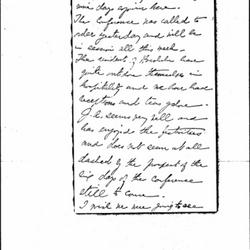 day
The Conference was called to
order yesterday and will be
in session all this week.
The
quite outdone themselves in
hospitality and we have had
receptions and teas galore.
J.C. seems very well and
has enjoyed the festivities
and does not seem at all
dashed by the prospect of the
six days of the Conference
still to come.
I wish we were going to see